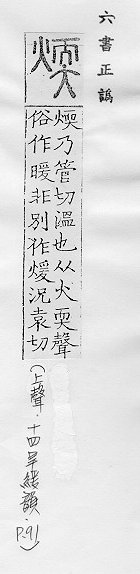 六書正譌
煗
煗乃管切溫也从火耎聲
俗作暖非別作煖況袁切
(上聲.十四旱緩韻.P.91)